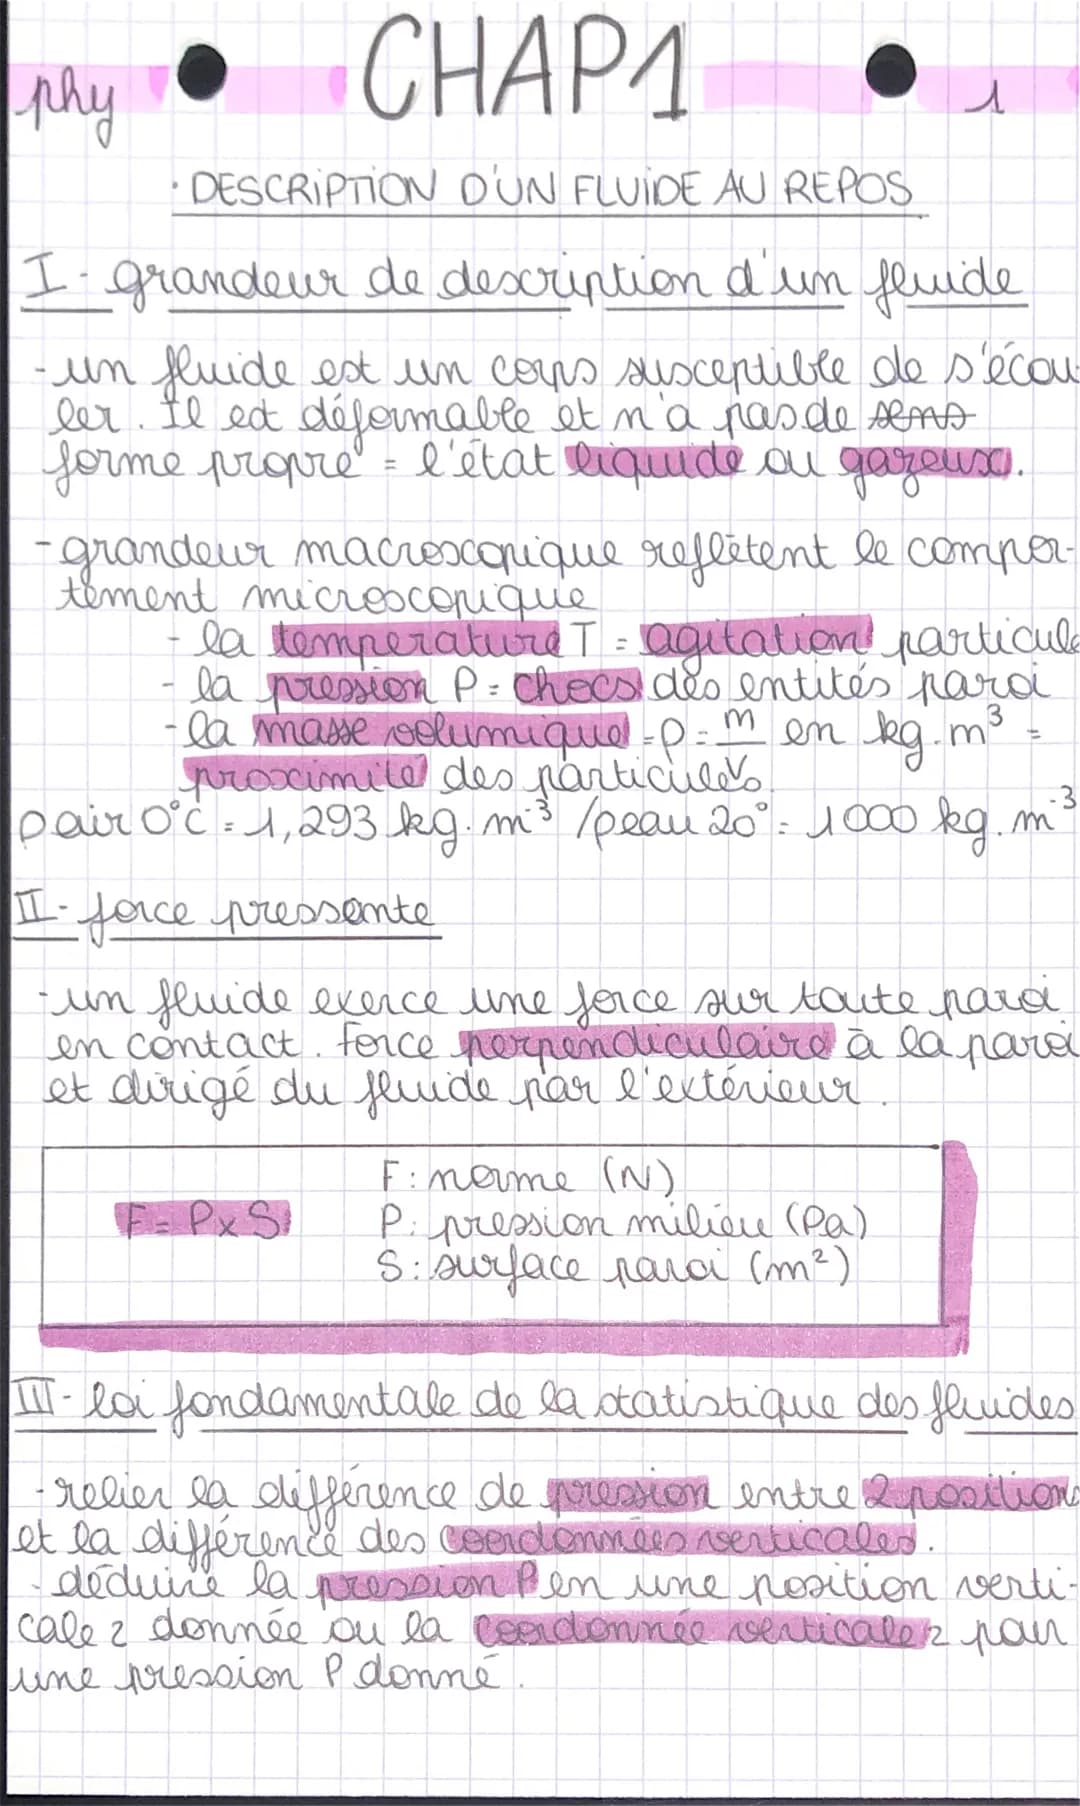 phy CHAP1 1
· DESCRIPTION D'UN FLUIDE AU REPOS
I - grandeur de description d'un fluide
- un fluide est un corps susceptible de s'écou-
ler. Il est déformable et n'a pas de
forme propre = l'état liquide ou gazeux.
- grandeur macroscopique reflètent le compor-
tement microscopique
- la temperature T = agitation particule
- la pression P = chocs des entités paroi
- la masse volumique = ρ = m/V en kg.m³ =
proximité des particules
ρ air 0°C = 1,293 kg.m⁻³ / ρeau 20° = 1000 kg.m⁻³
II - force pressante
- un fluide exerce une force sur toute paroi
en contact. Force perpendiculaire à la paroi
et dirigé du fluide par l'extérieur.
F: norme (N)
F = P x S P: pression milieu (Pa)
S: surface paroi (m²)
III - loi fondamentale de la statistique des fluides
- relier la différence de pression entre 2 positions
et la différence des coordonnées verticales.
- déduire la pression P en une position verti-
cale z donnée ou la coordonnée verticale z pour
une pression P donné.